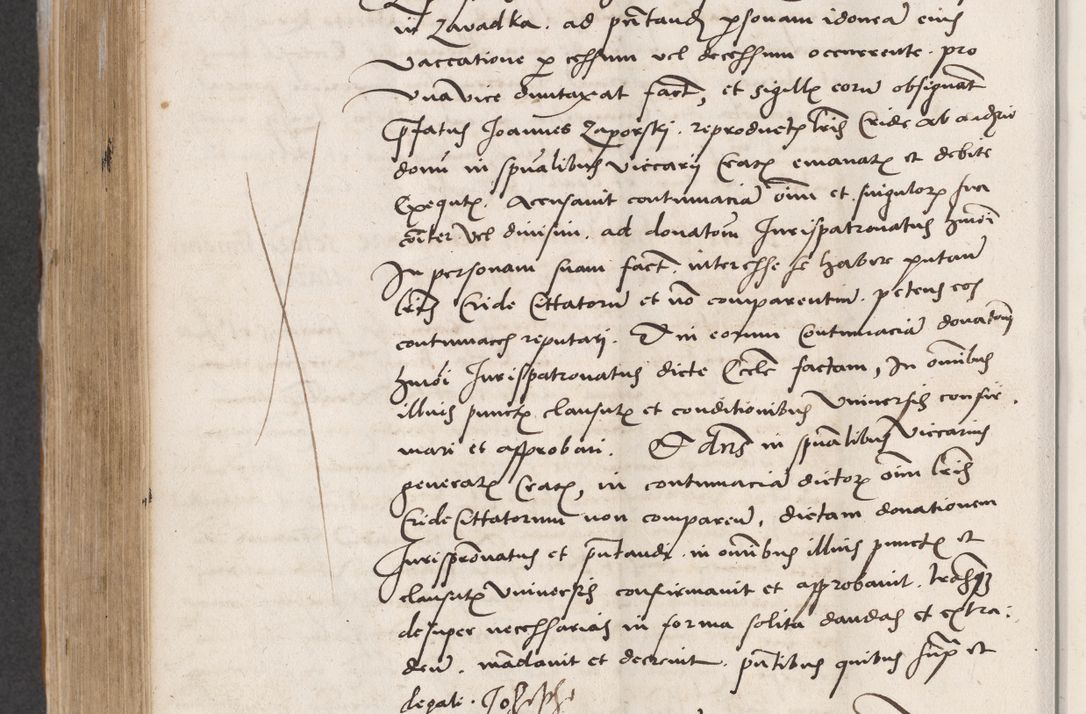 in Zavadka . ad pntandu personam idoneam eius
vaccatione per cessum vel decessum occurrente . pro
una vice duntaxat fact, et sigillis eorum obsignat
pfatus Joannes Zaporski . reproductis lris Cride ab audien
domini in spualibus viccarii Crac emanatis et debite
Exequtis . Accusavit contumaciam oim et singulorum sua
coiter vel divisim . ad donatoem Jurispatronatus hmoi
In personam suam fact . interesse se habere putan
lris Cride Cittatorum et non comparentium . petens eos
contumaces reputari . Et in eorum Contumaciam donatoem
hmoi Jurispatronatus dicte Eccle factam, In omnibus
illius punctis clausulis et conditionibus Universis confir .
mari et approbari . Et dns in spualibus viccarius
generalis Crac, in contumaciam dictorum oim lris
Cride Cittatorum non comparen, dictam donationem
Jurispronatus et pntandi . in omnibus illius punctis et
clausulis Universis confirmavit et approbavit . lrasque
desuper necessarias in forma solita dandas et extra :
den . mandavit et decrevit . pntibus quibus supra et
degali . Joseph